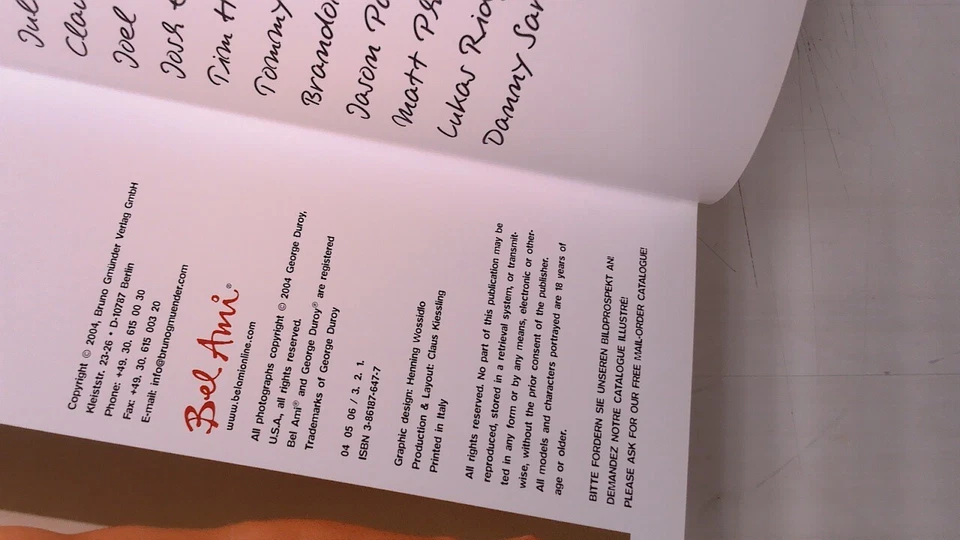 Joel
Josh
Tim H
Tommy
Brandon
Jason
Matt
Lukas
Danny
Copyright © 2004, Bruno Gmünder Verlag GmbH
Kleiststr. 23-26 • D-10787 Berlin
Phone: +49. 30. 615 00 30
Fax: +49. 30. 615 003 20
E-mail: info@brunogmuender.com
Bel Ami®
www.belamionline.com
All photographs copyright © 2004 George Duroy,
U.S.A., all rights reserved.
Bel Ami® and George Duroy® are registered
Trademarks of George Duroy
04 05 06 / 3. 2. 1.
ISBN 3-86187-647-7
Graphic design: Henning Wossidlo
Production & Layout: Claus Kiessling
Printed in Italy
All rights reserved. No part of this publication may be
reproduced, stored in a retrieval system, or transmit-
ted in any form or by any means, electronic or other-
wise, without the prior consent of the publisher.
All models and characters portrayed are 18 years of
age or older.
BITTE FORDERN SIE UNSEREN BILDPROSPEKT AN!
DEMANDEZ NOTRE CATALOGUE ILLUSTRÉ!
PLEASE ASK FOR OUR FREE MAIL-ORDER CATALOGUE!